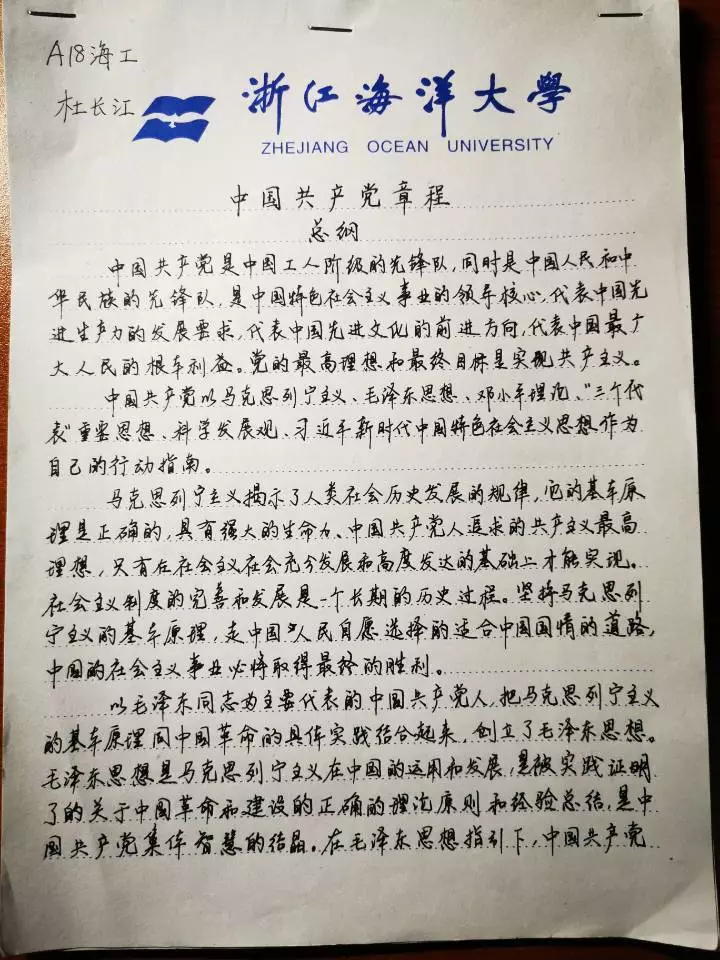 A18海工
杜长江
浙江海洋大学
ZHEJIANG OCEAN UNIVERSITY
中国共产党章程
总纲
中国共产党是中国工人阶级的先锋队,同时是中国人民和中
华民族的先锋队,是中国特色社会主义事业的领导核心,代表中国先
进生产力的发展要求,代表中国先进文化的前进方向,代表中国最广
大人民的根本利益。党的最高理想和最终目标是实现共产主义。
中国共产党以马克思列宁主义、毛泽东思想、邓小平理论、“三个代
表”重要思想、科学发展观、习近平新时代中国特色社会主义思想作为
自己的行动指南。
马克思列宁主义揭示了人类社会历史发展的规律,它的基本原
理是正确的,具有强大的生命力、中国共产党人追求的共产主义最高
理想,只有在社会主义社会充分发展和高度发达的基础上才能实现。
社会主义制度的完善和发展是一个长期的历史过程。坚持马克思列
宁主义的基本原理,走中国人民自愿选择的适合中国国情的道路,
中国的社会主义事业必将取得最终的胜利。
以毛泽东同志为主要代表的中国共产党人,把马克思列宁主义
的基本原理同中国革命的具体实践结合起来,创立了毛泽东思想。
毛泽东思想是马克思列宁主义在中国的运用和发展,是被实践证明
了的关于中国革命和建设的正确的理论原则和经验总结,是中
国共产党集体智慧的结晶。在毛泽东思想指引下,中国共产党